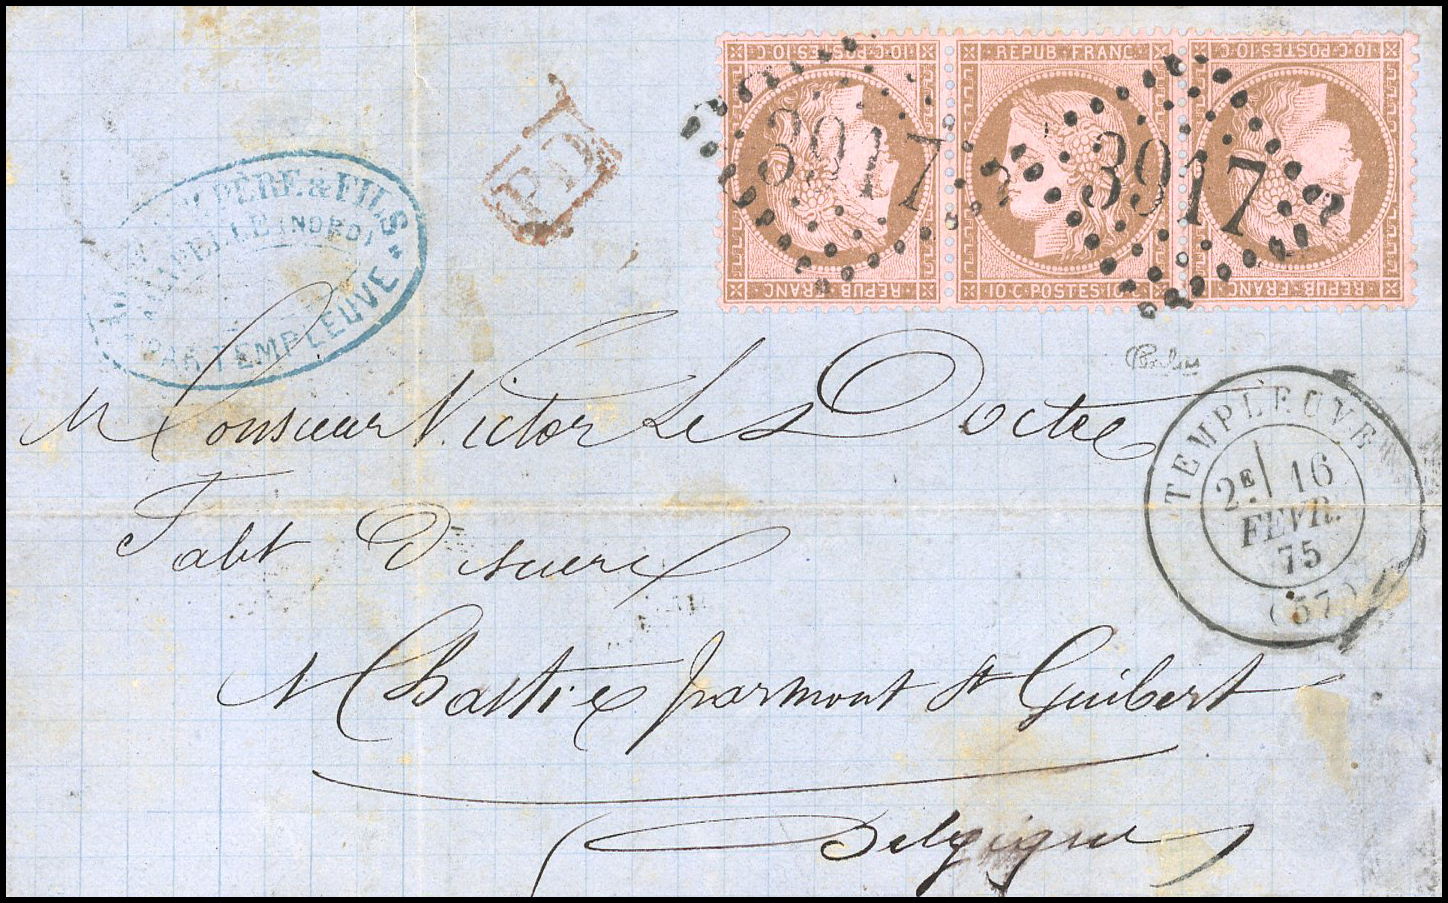 10·C·POSTES·10·C
REPUB·FRANC
REPUB·FRANC
10·C·POSTES·10·C
10·C·POSTES·10·C
REPUB·FRANC
3917
3917
PD
PÈRE & FILS
(NORD)
PAR TEMPLEUVE
Monsieur Victor Le Docte
Fabt De sucre
A Chastre par mont St Guibert
Belgique
TEMPLEUVE
2E 16
FEVR.
75
(57)